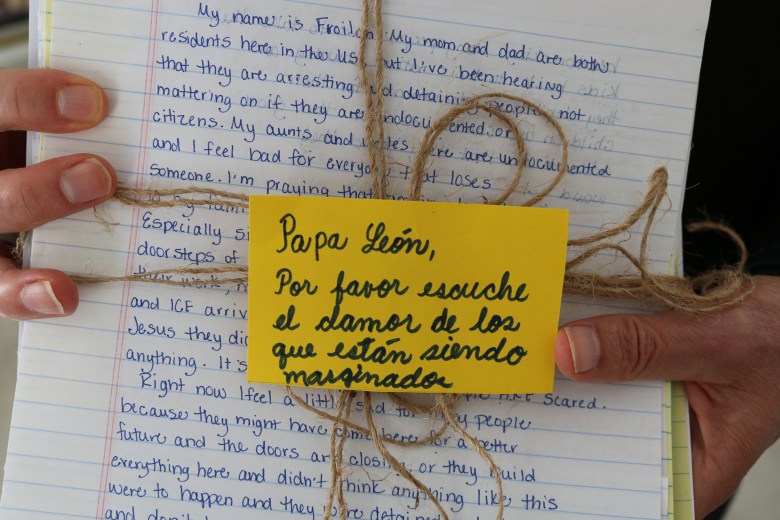 My name is Froilan My mom and dad are both
residents here in the US, but I've been hearing
that they are arresting detaining people not
mattering on if they are undocumented or
citizens. My aunts and uncles here are undocumented
and I feel bad for everyone that loses
someone. I'm praying that
Especially
doorsteps of
their work,
and ICE
Jesus they
anything. It's
scared.
Right now I feel a little sad for people
because they might have come here for a better
future and the doors are closing, or they build
everything here and didn't think anything like this
were to happen and they were detained
and don't
Papa León,
Por favor escuche
el clamor de los
que están siendo
marginados